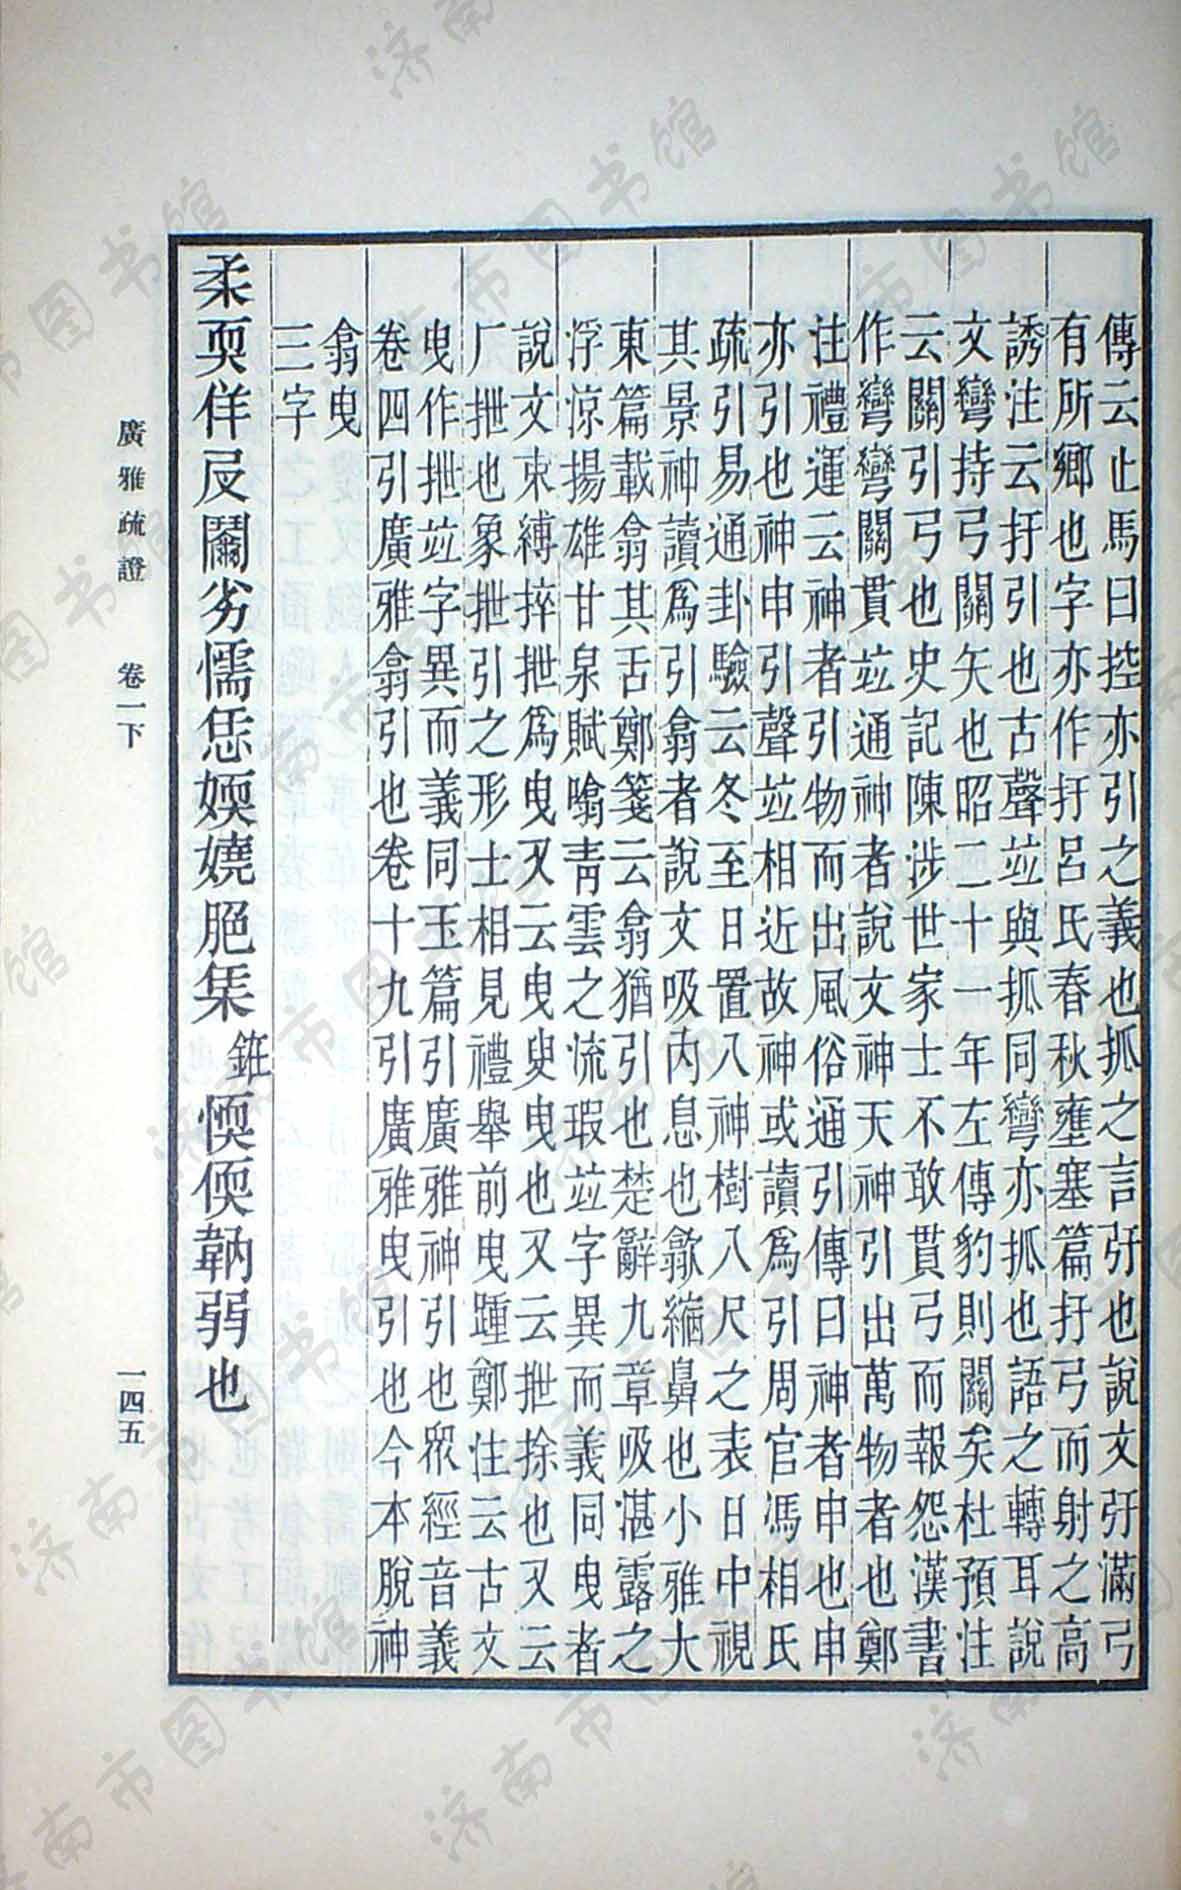 傳云止馬曰控亦引之義也抓之言弙也說文弙滿弓
有所鄉也字亦作扜呂氏春秋壅塞篇扜弓而射之高
誘注云扜引也古聲竝與抓同彎亦抓也語之轉耳說
文彎持弓關矢也昭二十一年左傳豹則關矣杜預注
云關引弓也史記陳涉世家士不敢貫弓而報怨漢書
作彎彎關貫竝通神者說文神天神引出萬物者也鄭
注禮運云神者引物而出風俗通引傳曰神者申也申
亦引也神申引聲竝相近故神或讀爲引周官馮相氏
疏引易通卦驗云冬至日置八神樹八尺之表日中視
其景神讀爲引翕者說文吸內息也歙縮鼻也小雅大
東篇載翕其舌鄭箋云翕猶引也楚辭九章吸湛露之
浮涼揚雄甘泉賦噏靑雲之流瑕竝字異而義同曳者
說文束縛捽抴爲曳又云曳臾曳也又云抴捈也又云
厂抴也象抴引之形士相見禮舉前曳踵鄭注云古文
曳作抴竝字異而義同玉篇引廣雅神引也眾經音義
卷四引廣雅翕引也卷十九引廣雅曳引也今本脫神
翕曳
三字
柔耎佯㞋劣懦恁媆嬈脃愞偄弱也
廣雅疏證 卷一下 一四五
济南市图书馆